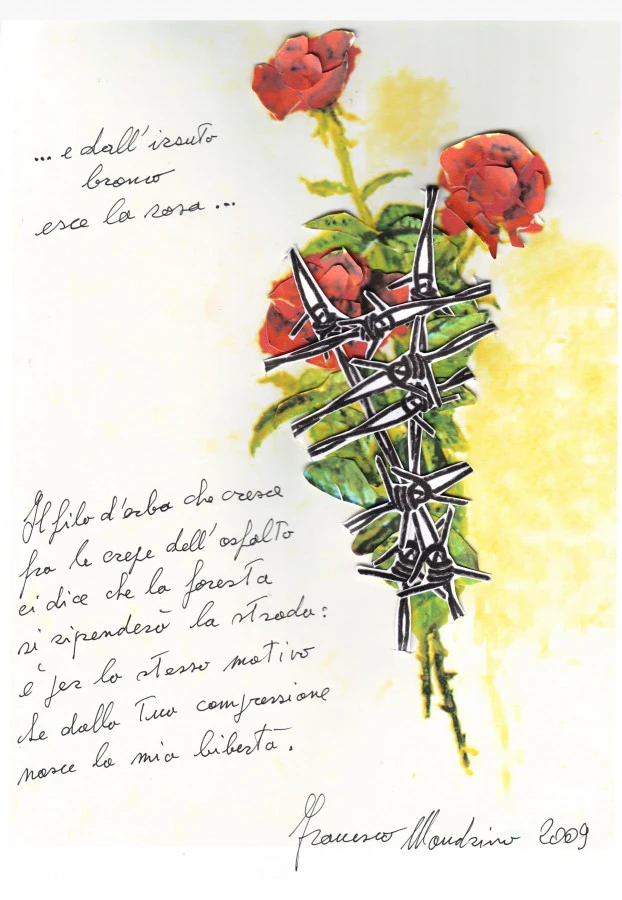 ... e dall'irsuto
bronco
esce la rosa ...
Il filo d'erba che cresce
fra le crepe dell'asfalto
ci dice che la foresta
si riprenderà la strada:
è per lo stesso motivo
che dalla Tua compressione
nasce la mia libertà.
Francesco Mandrino 2009